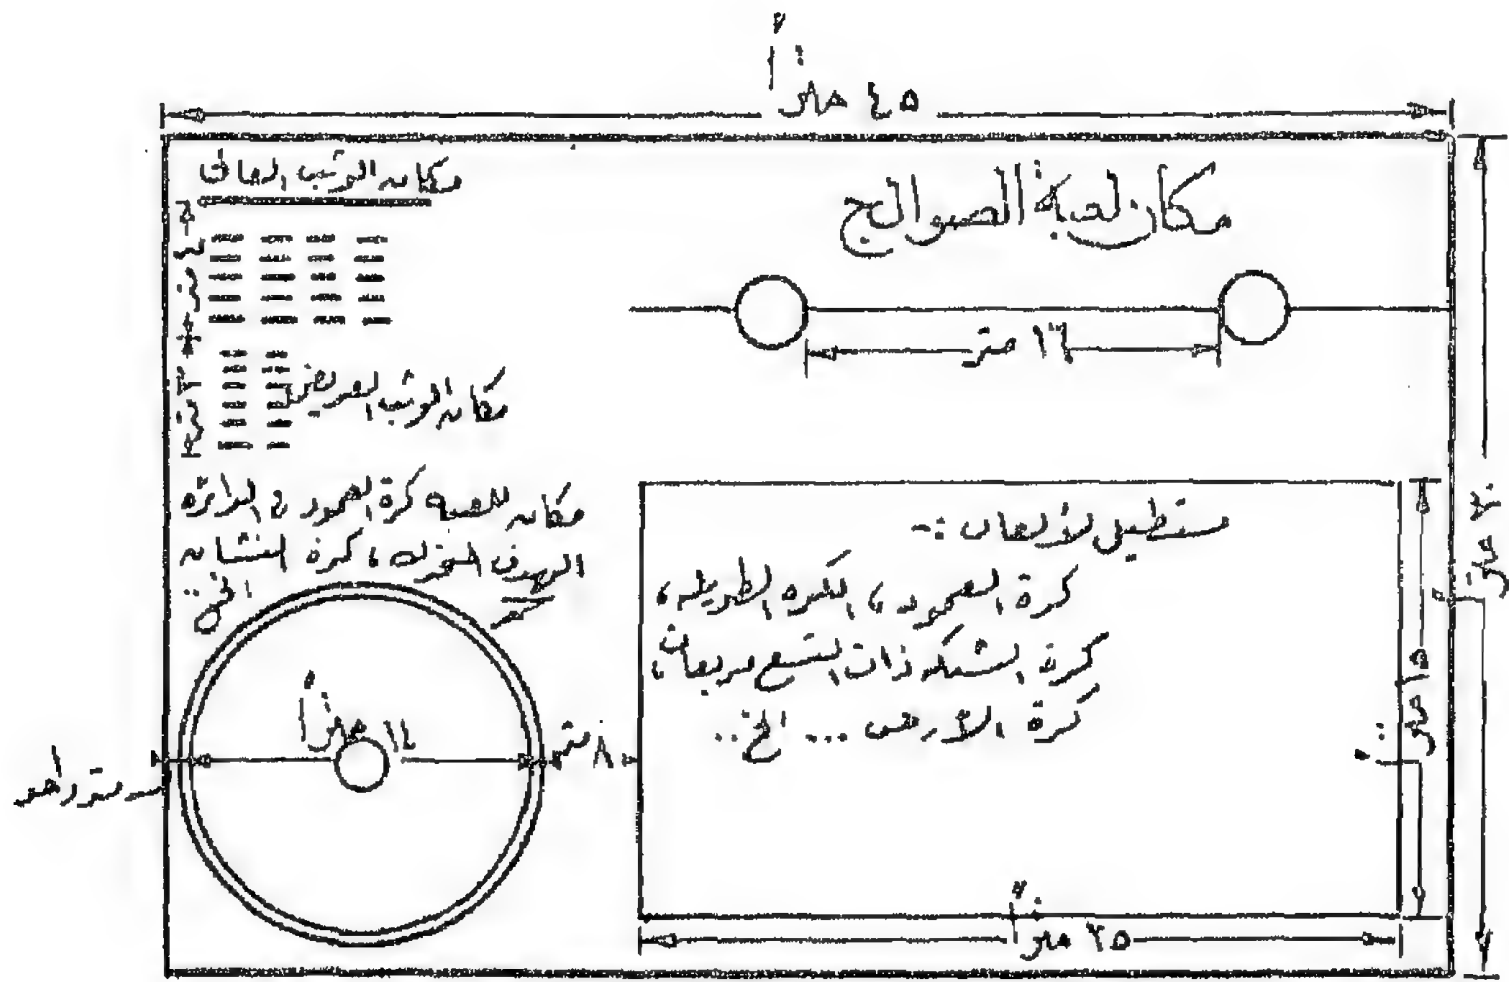 ٤٥ متراً
مكان الوثب العالي
مكان لعبة الصوالج
متر
١٦ متر
٣ متر
مكان الوثب العريض
٣٠ متر
مكان للعبة كرة العمود في الدائرة
الهدف المتحرك، كرة النشان
الخ..
مستطيل لألعاب :-
كرة العمود، الكرة الطويلة،
كرة الشبكة ذات التسع مربعات،
كرة الأرض ... الخ..
١٥ متر
١٢ متراً
٨ متر
متر واحد
٢٥ متراً